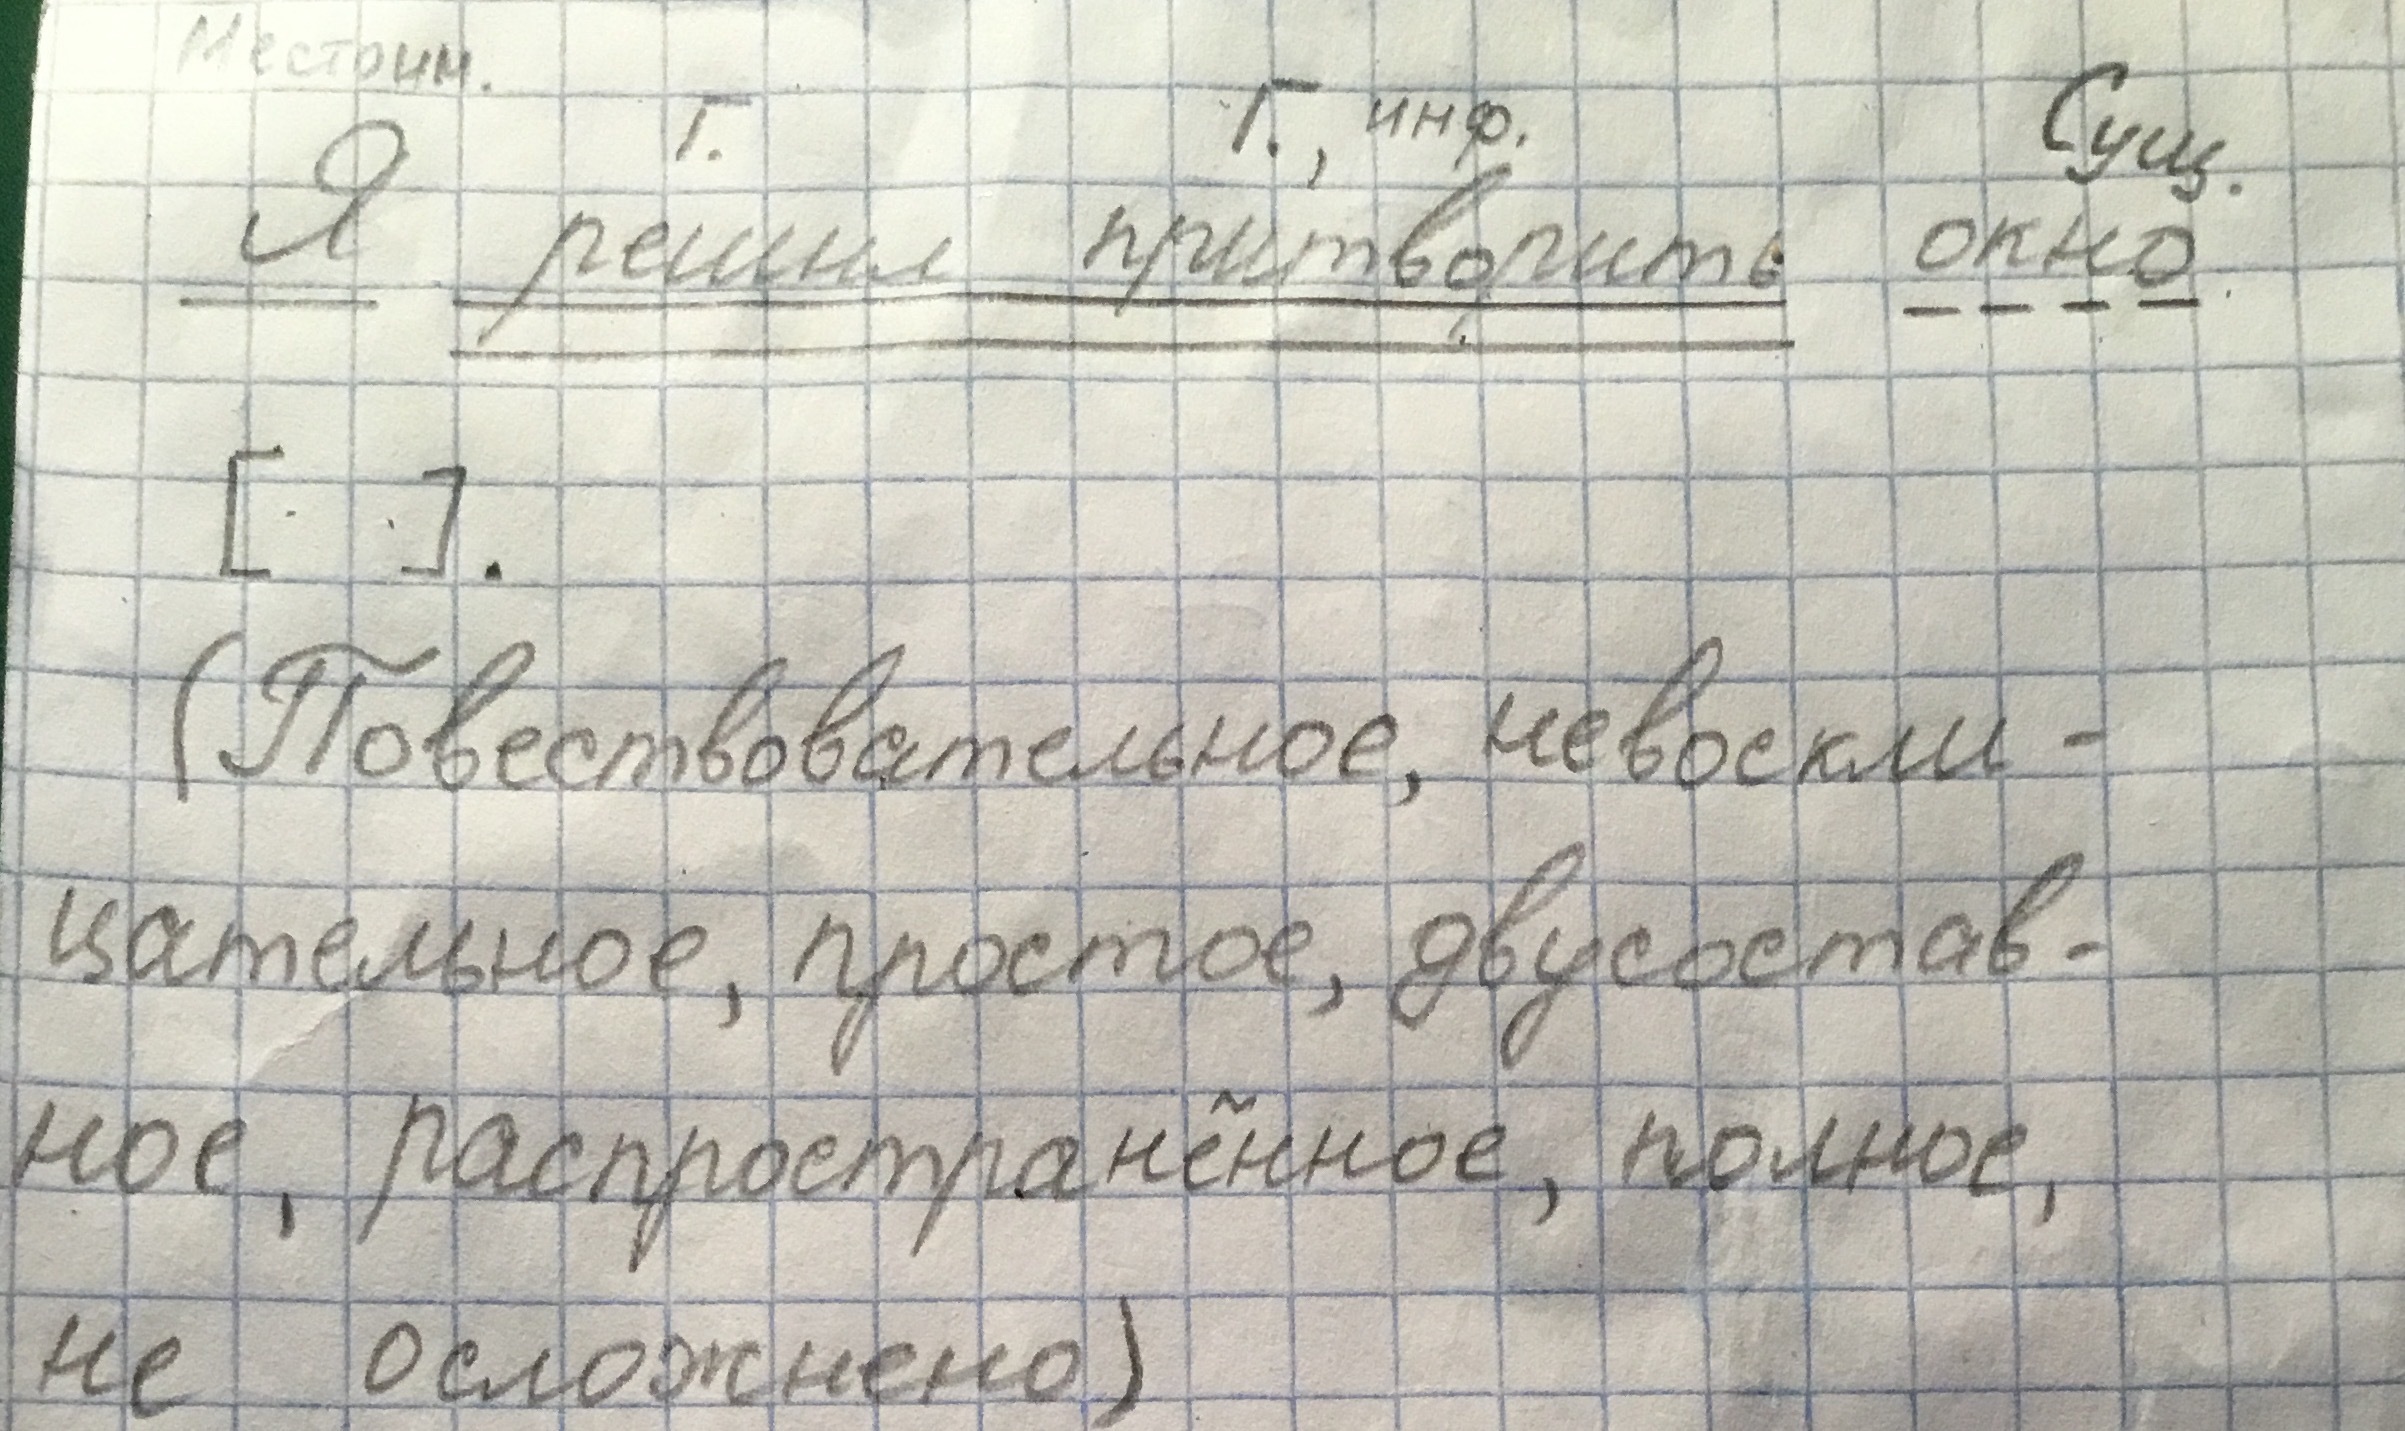 Местоим. Г. Г., инф. Сущ.
Я решил притворить окно.
[ ].
(Повествовательное, невоскли-
цательное, простое, двусостав-
ное, распространённое, полное,
не осложнено)